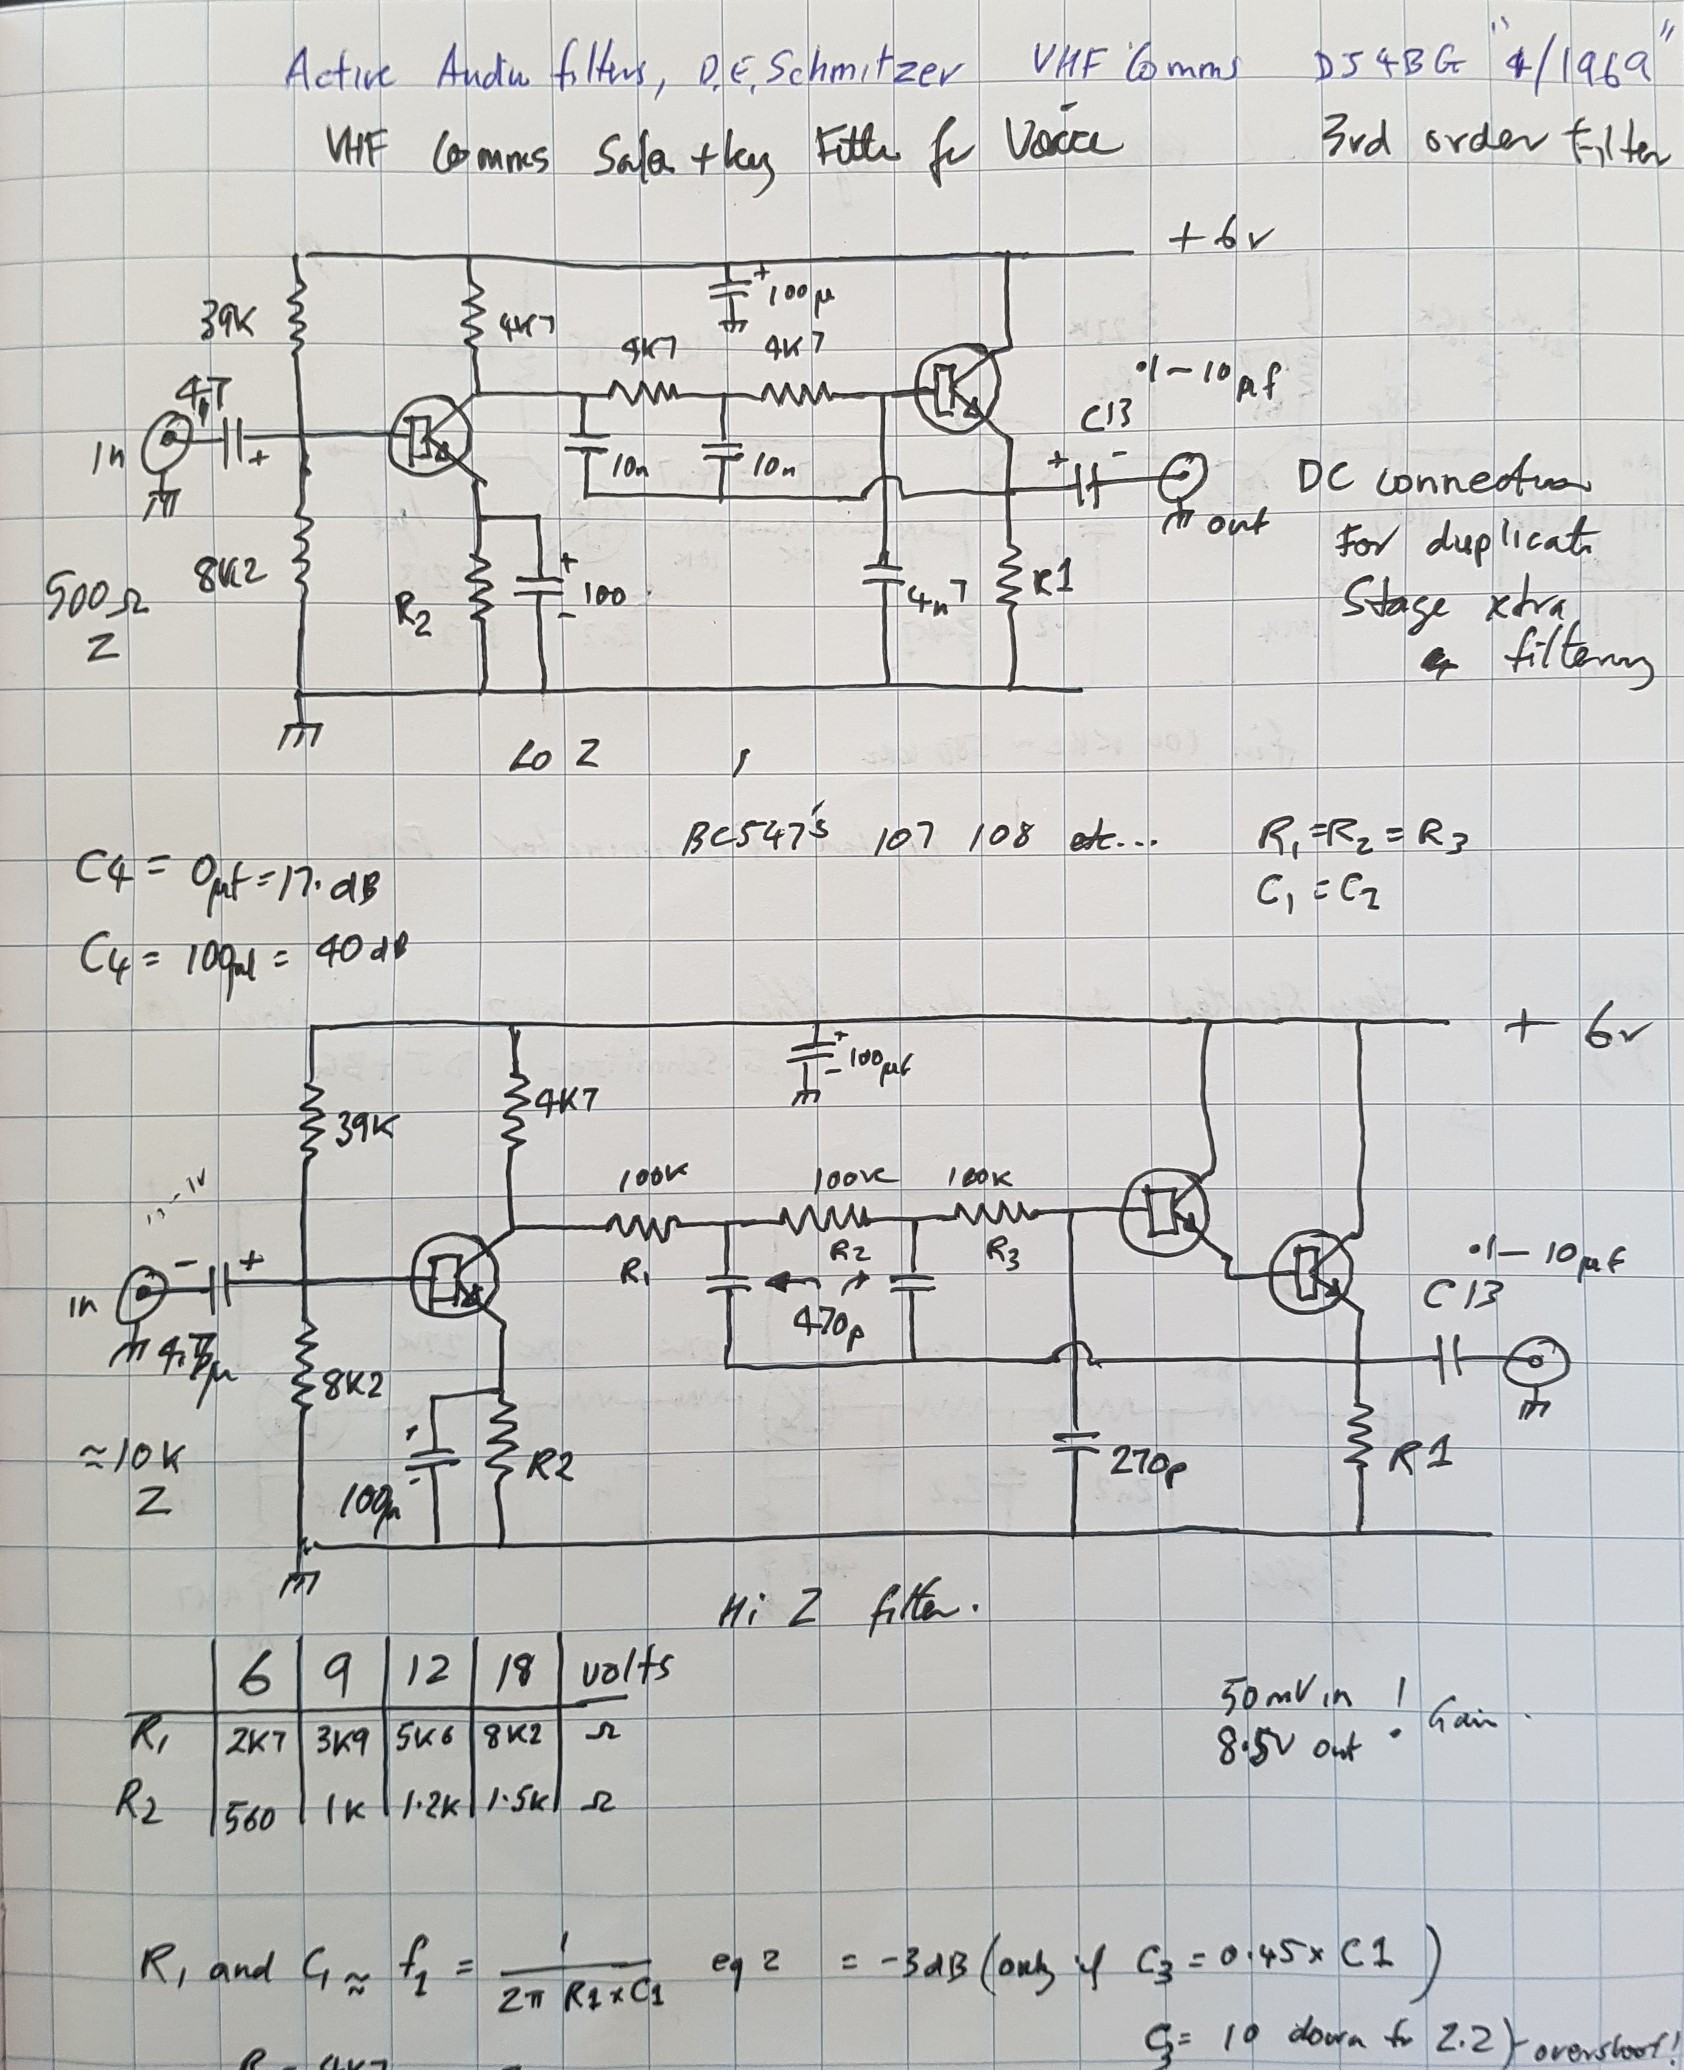 Active Audio filters, D.E. Schmitzer VHF Comms DJ4BG "4/1969"
VHF Comms 3rd order Filter
+6v
39K
4K7
+ 100µ
4K7 4K7
.1-10µf
C13
4,7
In
+
10n 10n
+ -
out
DC connection
For duplicate
Stage xtra
filtering
8K2
500Ω
Z
R2
+
100
-
4n7
R1
Lo Z
BC547's 107 108 etc...
R1=R2=R3
C1=C2
C4 = 0µf=17.dB
C4 = 100µf = 40dB
+ 6v
+
- 100µf
39K
4K7
100K 100K 100K
R1 R2 R3
.1-10µf
C13
In
- +
470p
8K2
≈10K
Z
+
-
100µ
R2
270p
R1
Hi Z filter.
6 9 12 18 volts
R1 2K7 3K9 5K6 8K2 Ω
R2 560 1K 1.2K 1.5K Ω
50mV in !
8.5V out Gain.
R1 and C1≈ f1 = 1 / 2π R1×C1 eq 2 = -3dB (only if C3 = 0.45×C1)
C3= 10 down to 2.2 } overshoot!